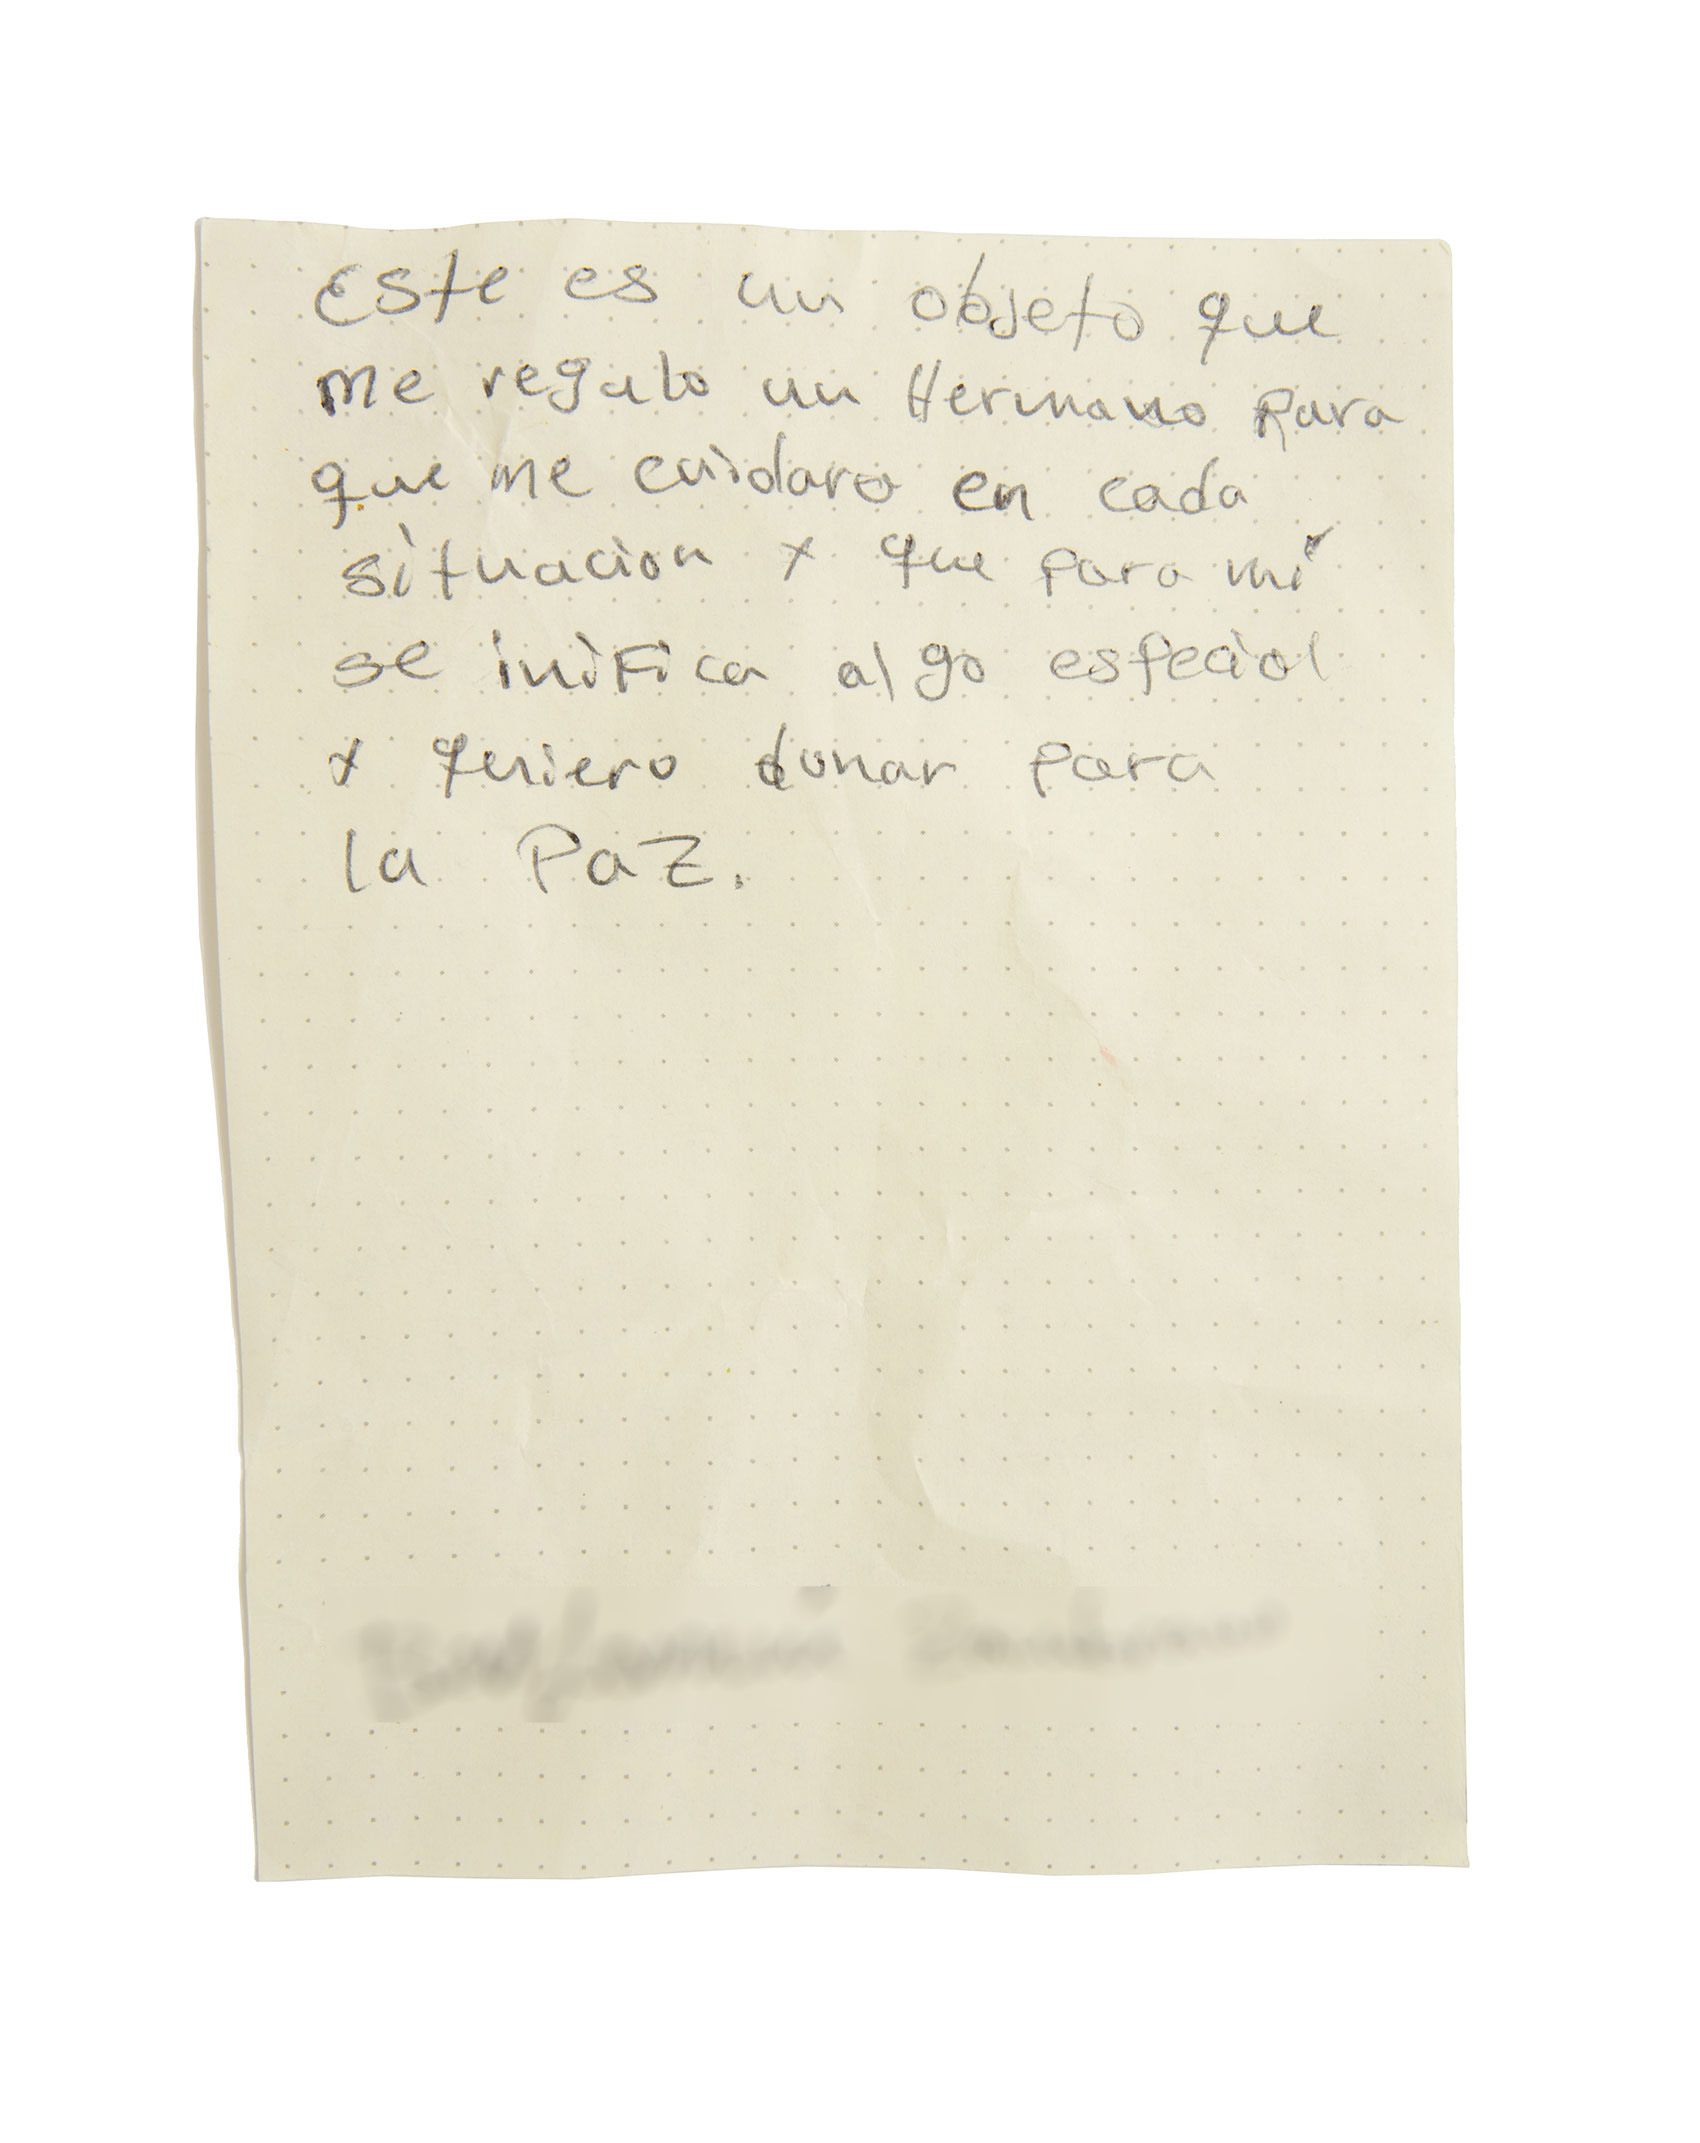 Este es un objeto que
me regalo un Hermano para
que me cuidara en cada
situacion y que para mi
se inifica algo especial
y quiero donar para
la Paz.